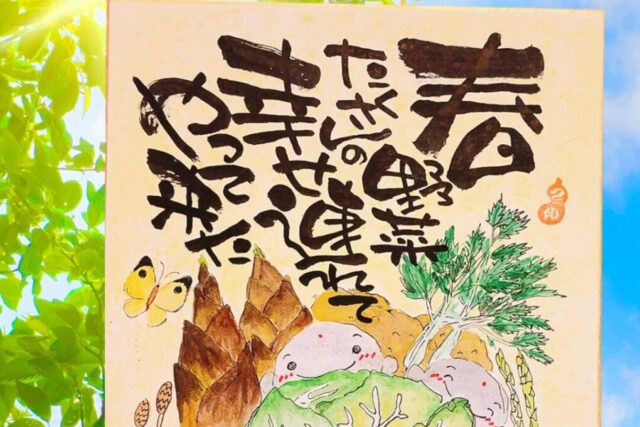 春
野菜
たくさんの
幸せ連れて
やって来た